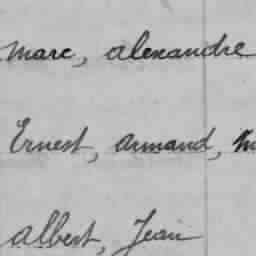 Marc, alexandre
Ernest, armand,
albert, Jean